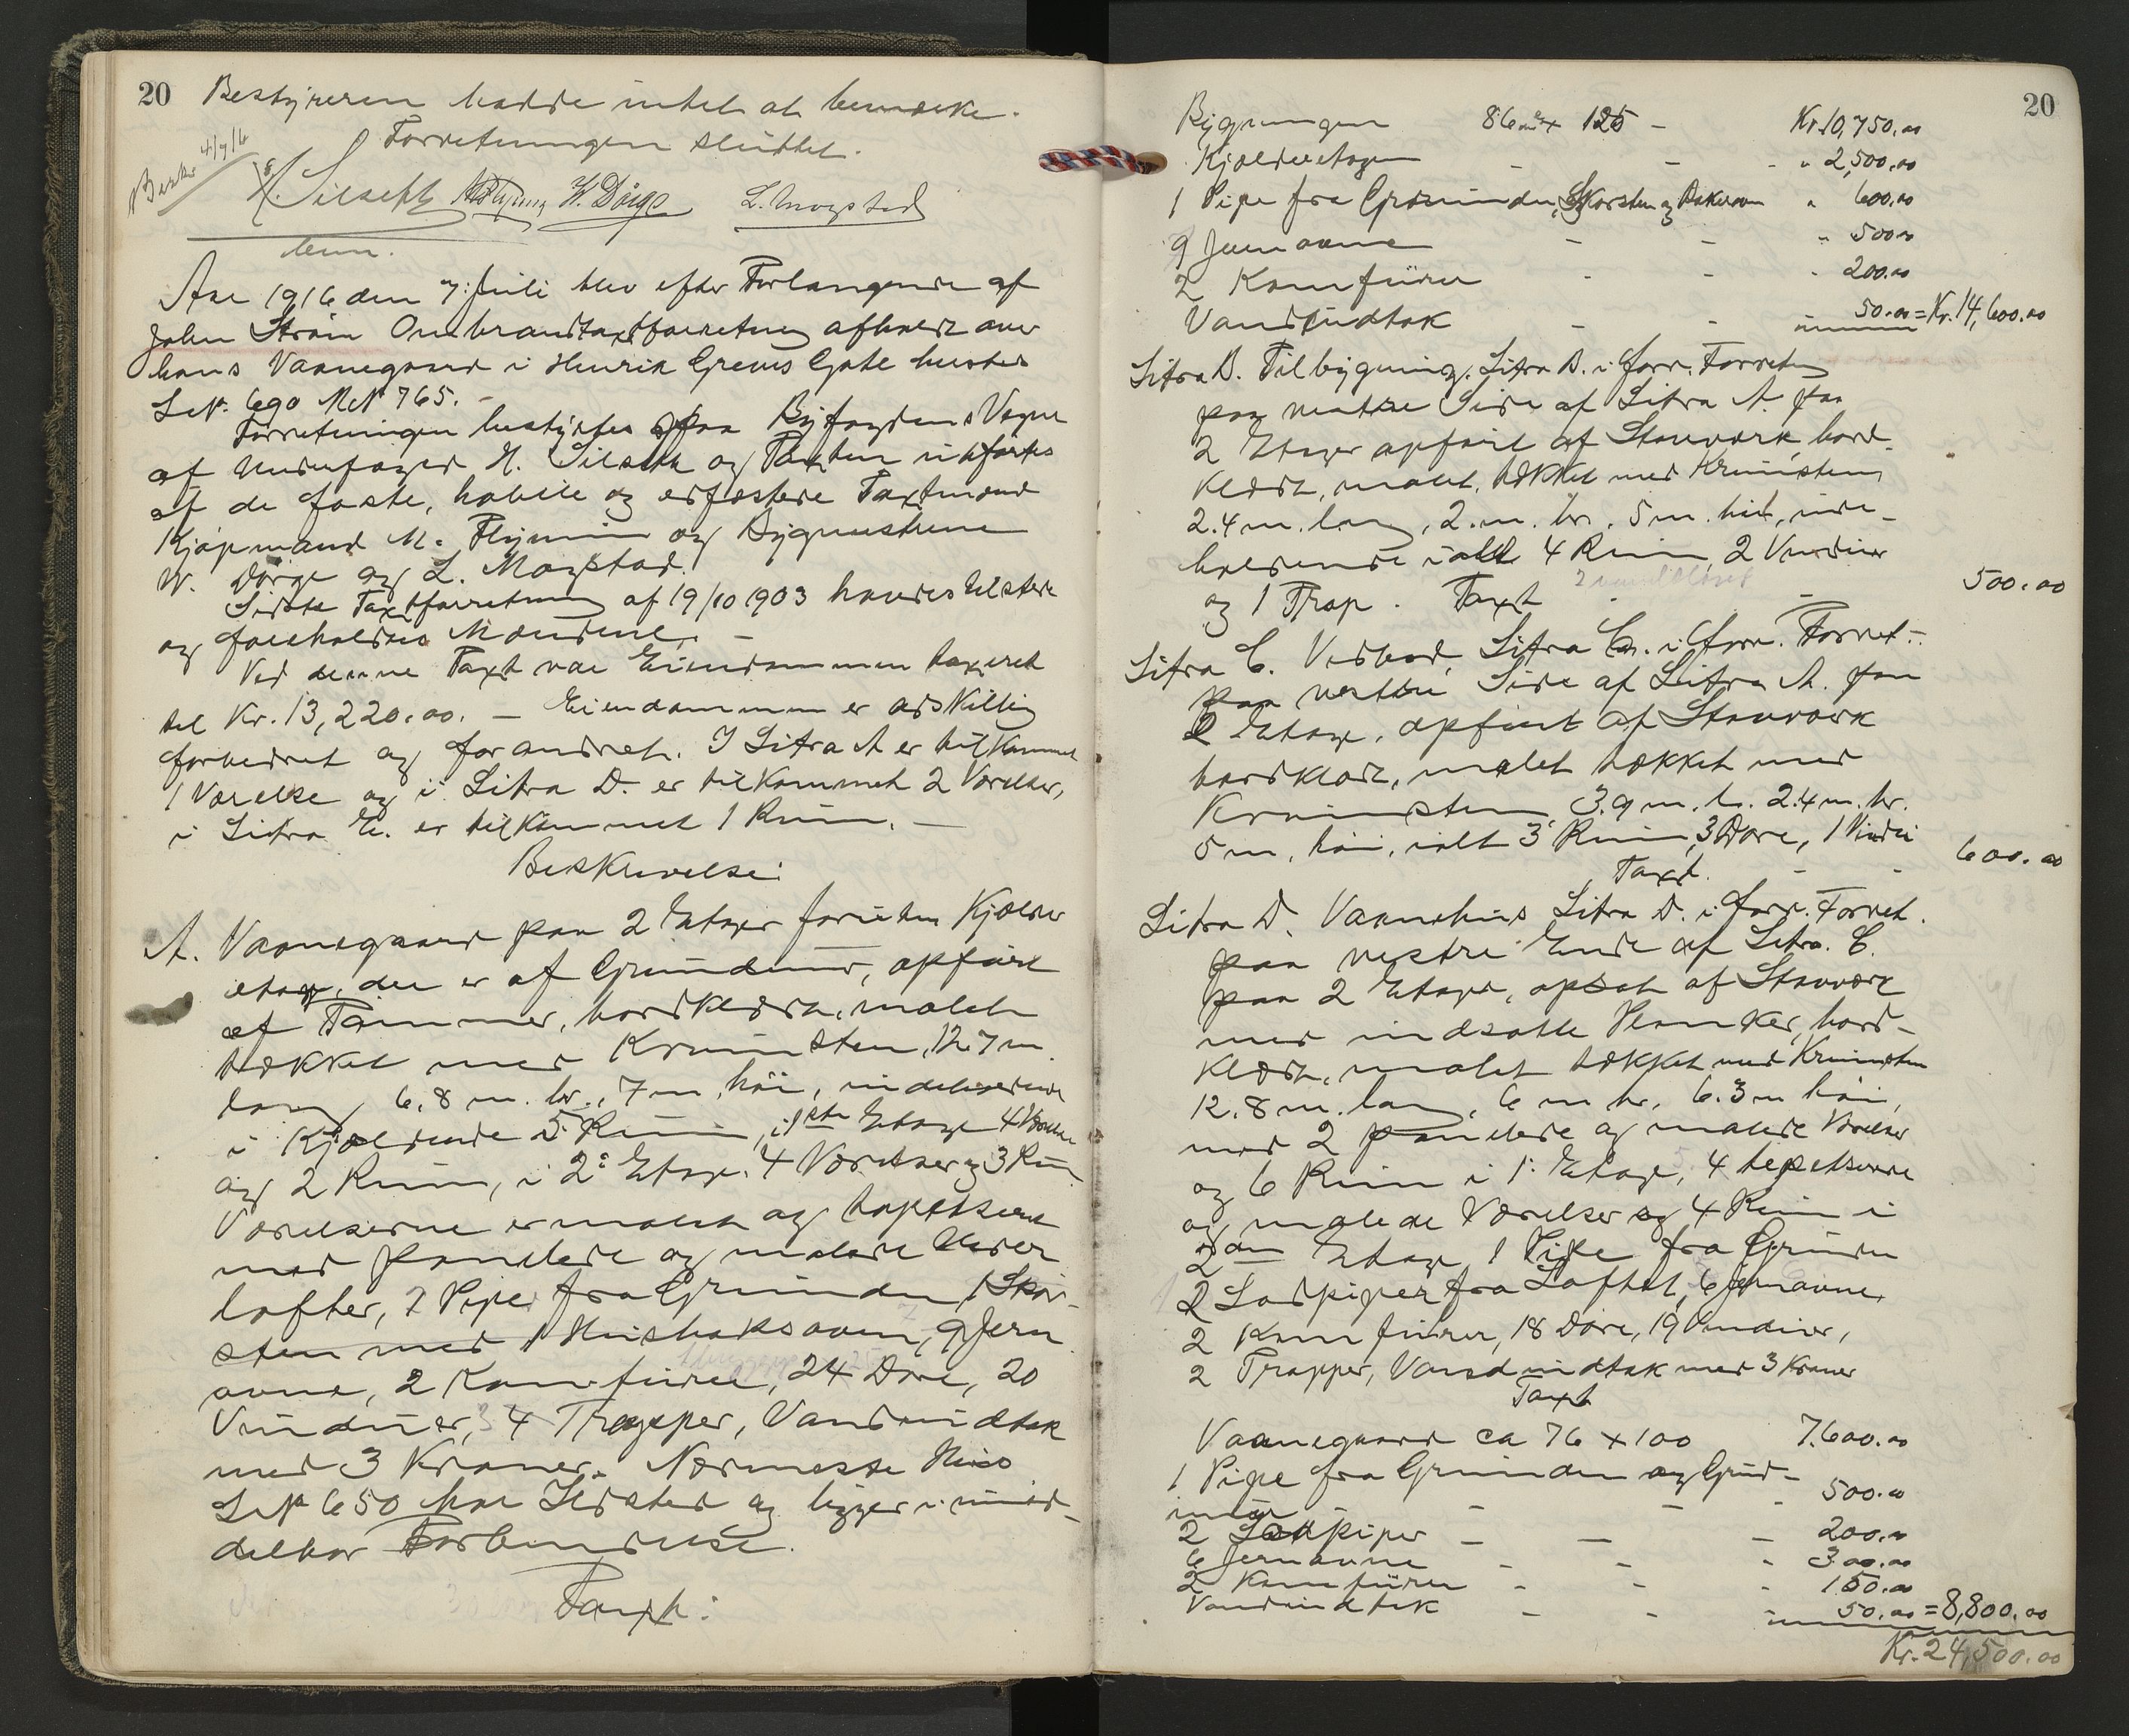 20
Bestyreren hadde intet at bemærke.
Forretningen sluttet.
4/7/16
H. Silseth W. Dörge L. Mogstad
Aar 1916 den 7. Juli blev efter Forlangende af
John Strøm Ombrandtaxtforretning afholdt over
hans Vaanegaard i Henrik Grews Gate
LNo. 690 MNo 765. -
Forretningen bestyrtes paa Byfogdens Vegne
af H. Silseth og Taxten utførtes
af de faste, habile og edfæstede Taxtmænd
Kjøpmand M. og Bygmestrene
W. Dörge og L. Mogstad.
Sidste Taxtforretning af 19/10 1903 havdes tilstede
og foreholdtes Mændene. -
Ved denne Taxt var Eiendommen taxeret
til Kr. 13,220.00. - Eiendommen er adskillig
forbedret og forandret. I Litra A er tilkommet
1 Værelse og i Litra D. er tilkommet 2 Værelser,
i Litra E. er tilkommet 1 Rum. -
Beskrivelse:
A. Vaanegaard paa 2 Etager foruten Kjælder
etage, der er af Grundmur, opført
af Tømmer, bordklædt, malet
tækket med Krumsten, 12.7 m
lang 6,8 m. br., 7 m. høi, indeholdende
i Kjælderen 5 Rum, i 1ste Etage 4 Værelser
og 2 Rum, i 2: Etage 4 Værelser og 3 Rum
Værelserne er malet og tapetseret
med panelede og malede
lofter, 2 Piper fra Grunden 1 Skor-
sten med 1 Husbaksoven, 9 Jern
ovne, 2 Komfürer, 24 Döre, 20
Vinduer, 4 Trapper, Vandindtak
med 3 Kraner. Nærmeste Hus
LNo 650 har Ildsted og ligger i umid-
delbar Forbindelse.
Taxt:
20
Bygningen 86 m² x 125 - Kr. 10,750.00
Kjælderetagen - - - " 2,500.00
1 Pipe fra Grunden, Skorsten og Bakerovn " 600.00
9 Jernovne - - " 500.00
2 Komfürer - - - 200.00
Vandindtak - - 50.00 = Kr. 14,600.00
Litra B. Tilbygning. Litra B. i forr. Forretn
paa vestre Side af Litra A. paa
2 Etager opført af Stavværk, bord-
klædt, malet, tækket med Krumsten
2.4 m. lang, 2. m. br. 5 m. høi, inde-
holdende ialt 4 Rum, 2 Vinduer
og 1 Trap. Taxt - - 500.00
Litra C. Vedbod, Litra C. i forr. Forret.
paa vestre Side af Litra A. paa
2 Etage, opført af Stavværk
bordklædt, malet tækket med
Krumsten, 3.9 m. l. 2.4 m. br.
5 m. høi, ialt 3 Rum, 3 Döre, 1 Vindu
Taxt. - - 600.00
Litra D. Vaanehus Litra D. i forr. Forret.
paa vestre Ende af Litra. C.
paa 2 Etage, opsat af Stavværk
med indsatte Planker, bord-
klædt, malet tækket med Krumsten
12.8 m. lang, 6 m br, 6.3 m høi,
med 2 panelede og malede Værelser
og 6 Rum i 1: Etage, 4 tapetserede
og malede Værelser og 4 Rum i
2den Etage 1 Pipe fra Grunden
2 Lodpiper fra Loftet, 6 Jernovne,
2 Komfürer, 18 Döre, 19 Vinduer,
2 Trapper, Vandindtak med 3 Kraner
Taxt
Vaanegaard ca 76 x 100 7.600.00
1 Pipe fra Grunden og Grund-
mur - - - 500.00
2 Lodpiper - - - 200.00
6 Jernovne - - - 300.00
2 Komfürer - - - 150.00
Vandindtak - - - 50.00 = 8,800.00
Kr. 24,500.00